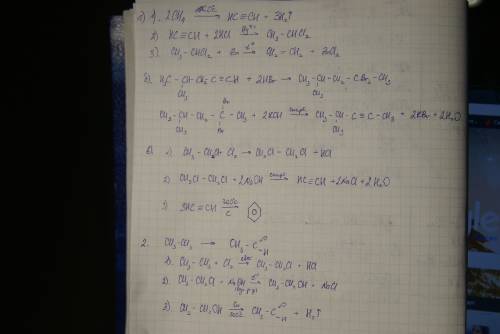 а) 1. 2CH₄ → HC≡CH + 3H₂↑
2) HC≡CH + 2HCl → CH₃-CHCl₂
3) CH₃-CHCl₂ + Zn →t° CH₂=CH₂ + ZnCl₂
б) H₃C-CH-CH₂-C≡CH + 2HBr → CH₃-CH-CH₂-CBr₂-CH₃
CH₃ CH₃
Br
CH₃-CH-CH₂-C-CH₃ + 2KOH →спирт CH₃-CH-C≡C-CH₃ + 2KBr + 2H₂O
CH₃ Br CH₃
в) 1) CH₃-CH₂Cl + Cl₂ → CH₂Cl-CH₂Cl + HCl
2) CH₂Cl-CH₂Cl + 2NaOH →спирт HC≡CH + 2NaCl + 2H₂O
3) 3HC≡CH
C
2. CH₃-CH₃ → CH₃-C=O
-H
1) CH₃-CH₃ + Cl₂ →свет CH₃-CH₂Cl + HCl
2) CH₃-CH₂Cl + NaOH →t° CH₃-CH₂OH + NaCl
3) CH₃-CH₂OH →Cu CH₃-C=O + H₂↑
-H